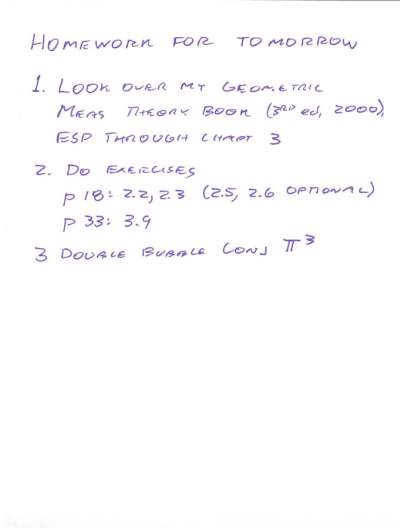 HOMEWORK FOR TOMORROW
1. LOOK OVER MY GEOMETRIC
MEAS THEORY BOOK (3RD ed, 2000),
ESP THROUGH CHAPT 3
2. DO EXERCISES
p 18: 2.2, 2.3 (2.5, 2.6 OPTIONAL)
p 33: 3.9
3 DOUBLE BUBBLE CONJ T³